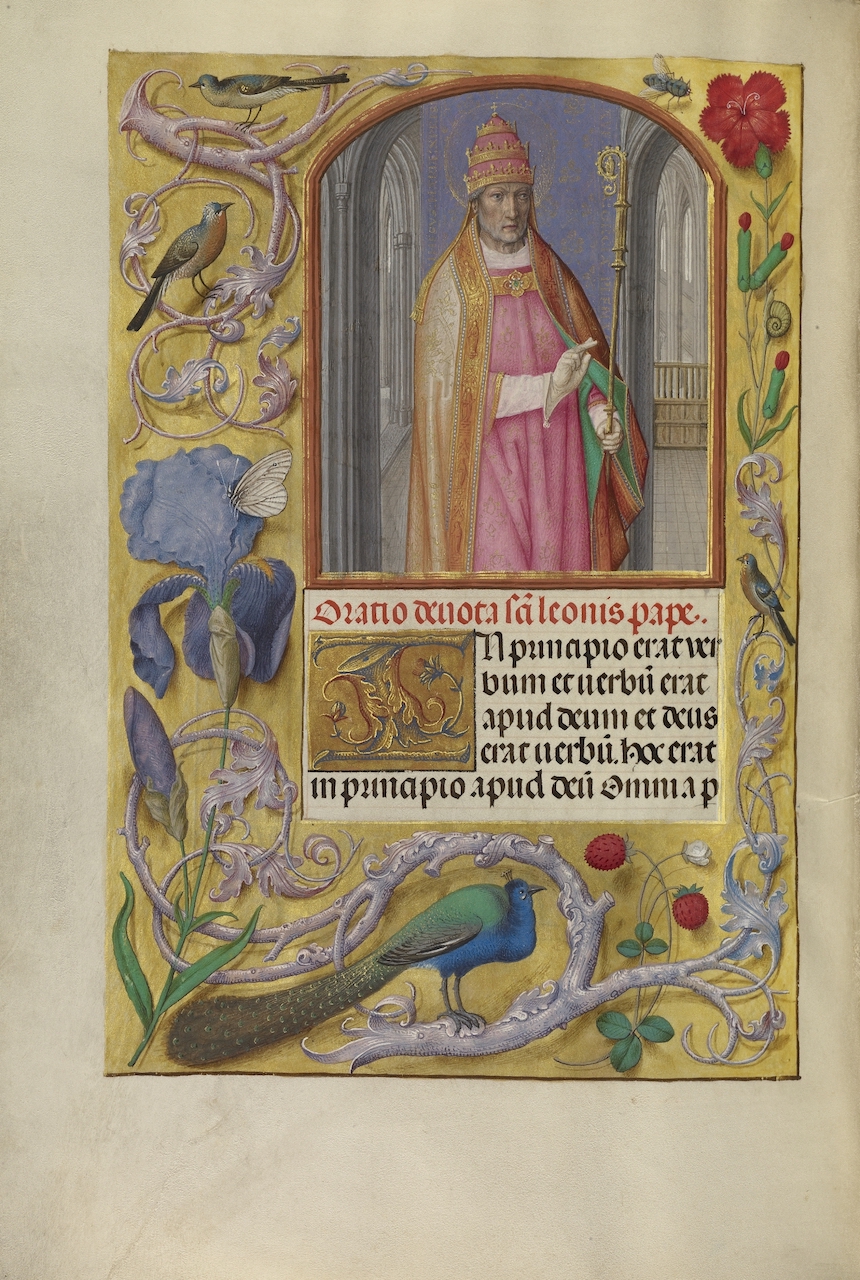 Oratio deuota scī leonis pape.
IN principio erat ver
bum et uerbū erat
apud deum et deus
erat uerbū. hoc erat
in principio apud deū Omnia p